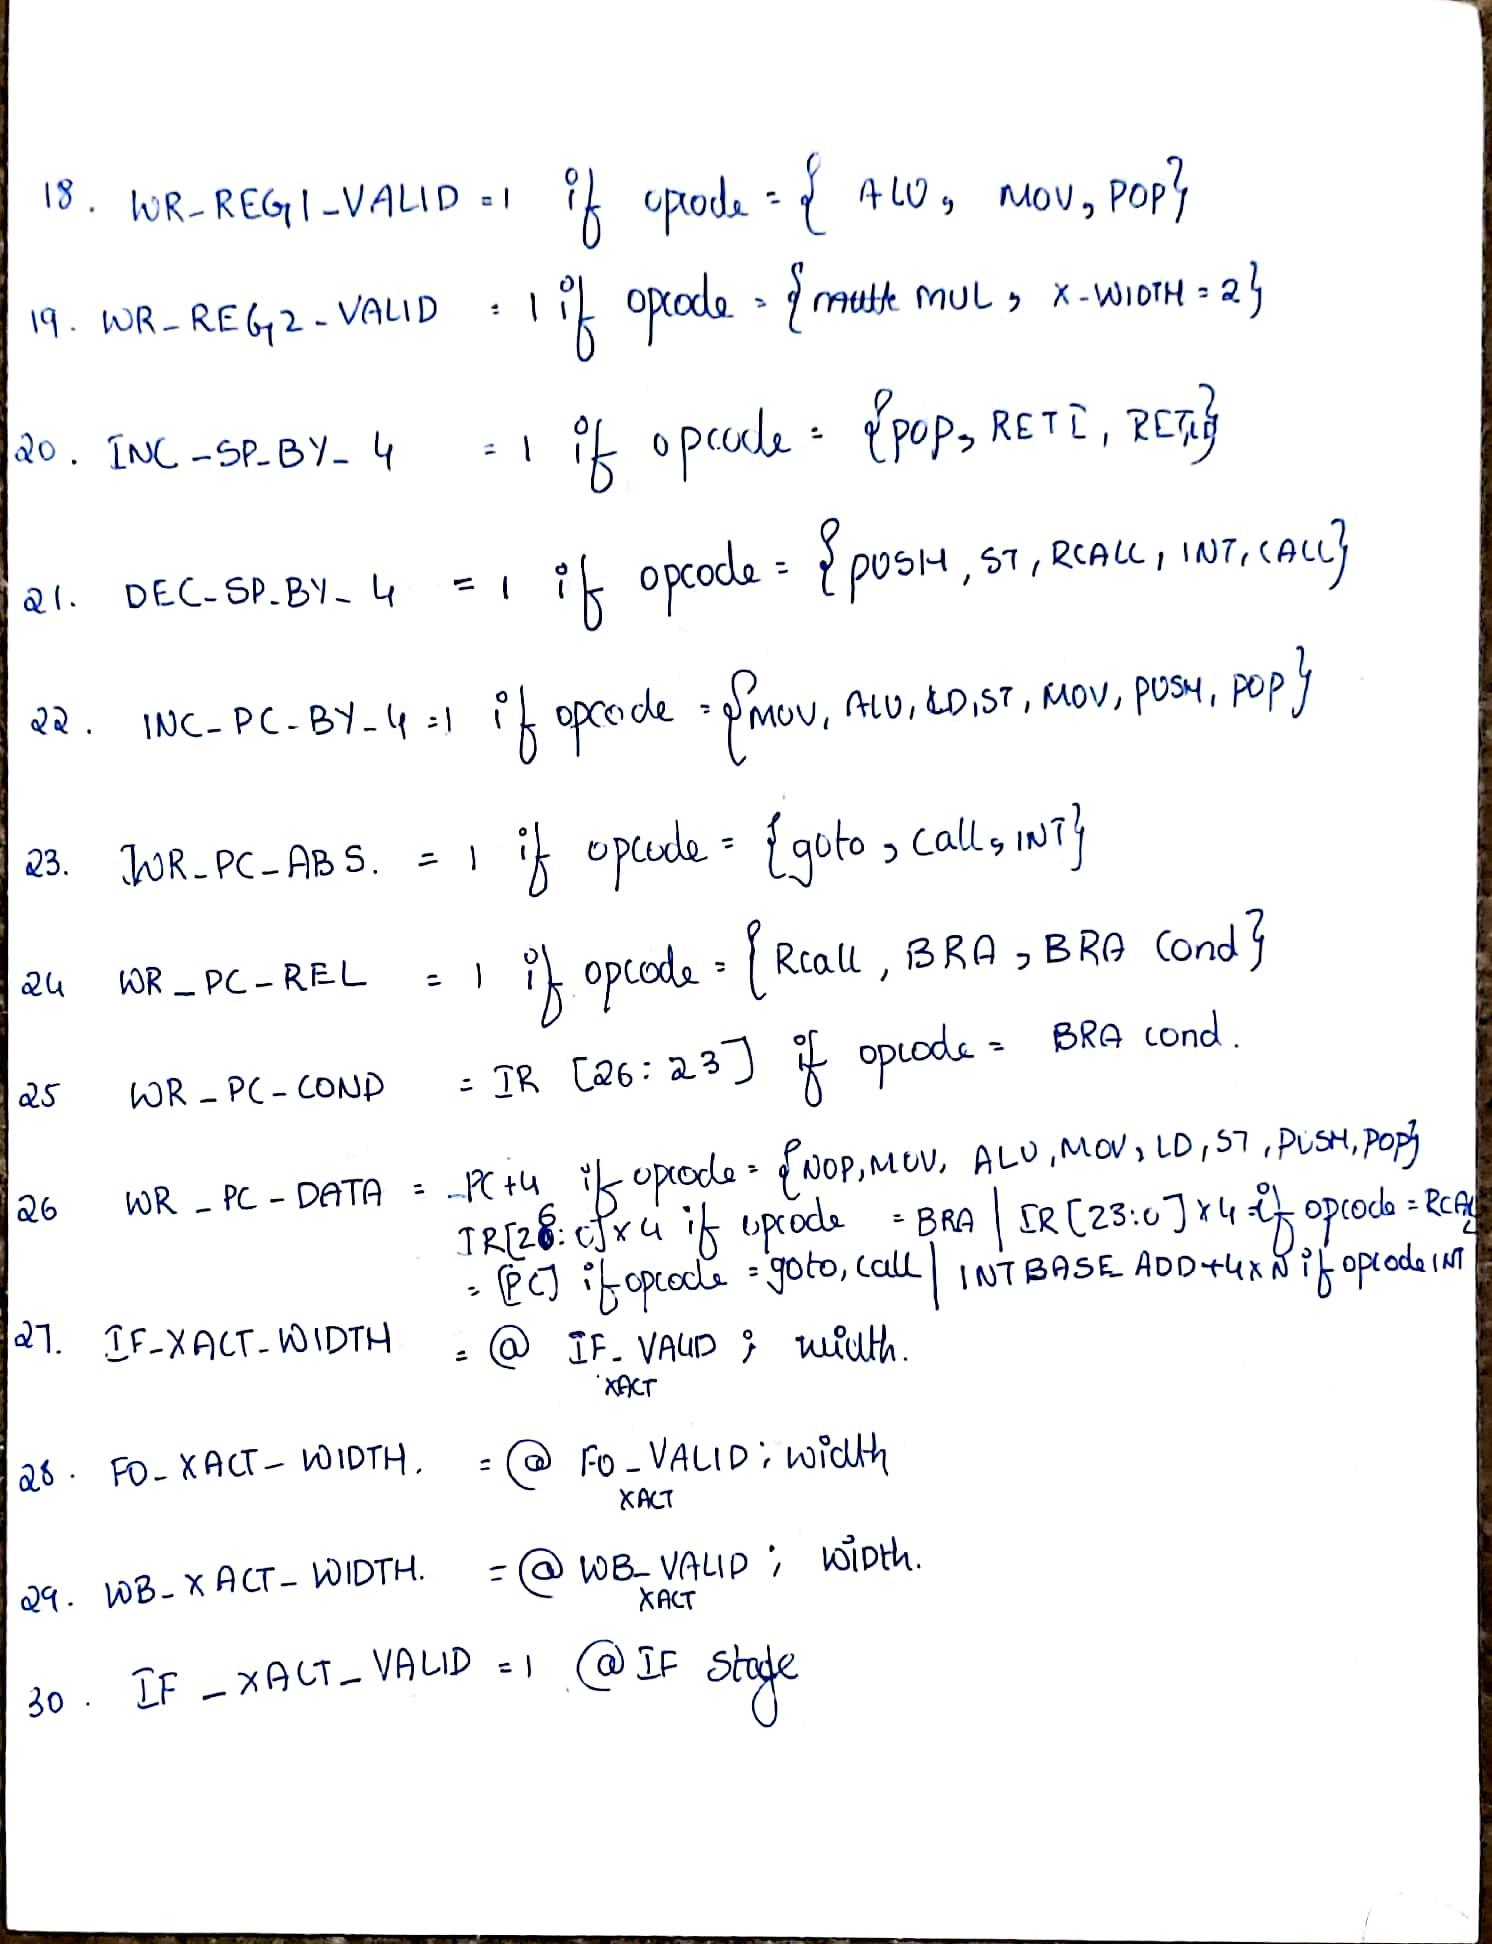 18. WR-REG1-VALID = 1 if opcode = { ALU, MOV, POP}
19. WR-REG2-VALID = 1 if opcode = { MUL, X-WIDTH = 2}
20. INC-SP-BY-4 = 1 if opcode = {POP, RETI, RET}
21. DEC-SP-BY-4 = 1 if opcode = {PUSH, ST, RCALL, INT, CALL}
22. INC-PC-BY-4 = 1 if opcode = {MOV, ALU, LD, ST, MOV, PUSH, POP}
23. WR-PC-ABS. = 1 if opcode = {goto, call, INT}
24 WR-PC-REL = 1 if opcode = {Rcall, BRA, BRA Cond}
25 WR-PC-COND = IR [26:23] if opcode = BRA cond.
26 WR-PC-DATA = PC+4 if opcode = {NOP, MOV, ALU, MOV, LD, ST, PUSH, POP}
IR[26:0]x4 if opcode = BRA | IR[23:0]x4 if opcode = RCAL
= [PC] if opcode = goto, call | INT BASE ADD+4xN if opcode INT
27. IF-XACT-WIDTH = @ IF-VALID ; width.
XACT
28. FO-XACT-WIDTH. = @ FO-VALID ; width
XACT
29. WB-XACT-WIDTH. = @ WB-VALID ; WIDth.
XACT
30. IF-XACT-VALID = 1 @ IF stage